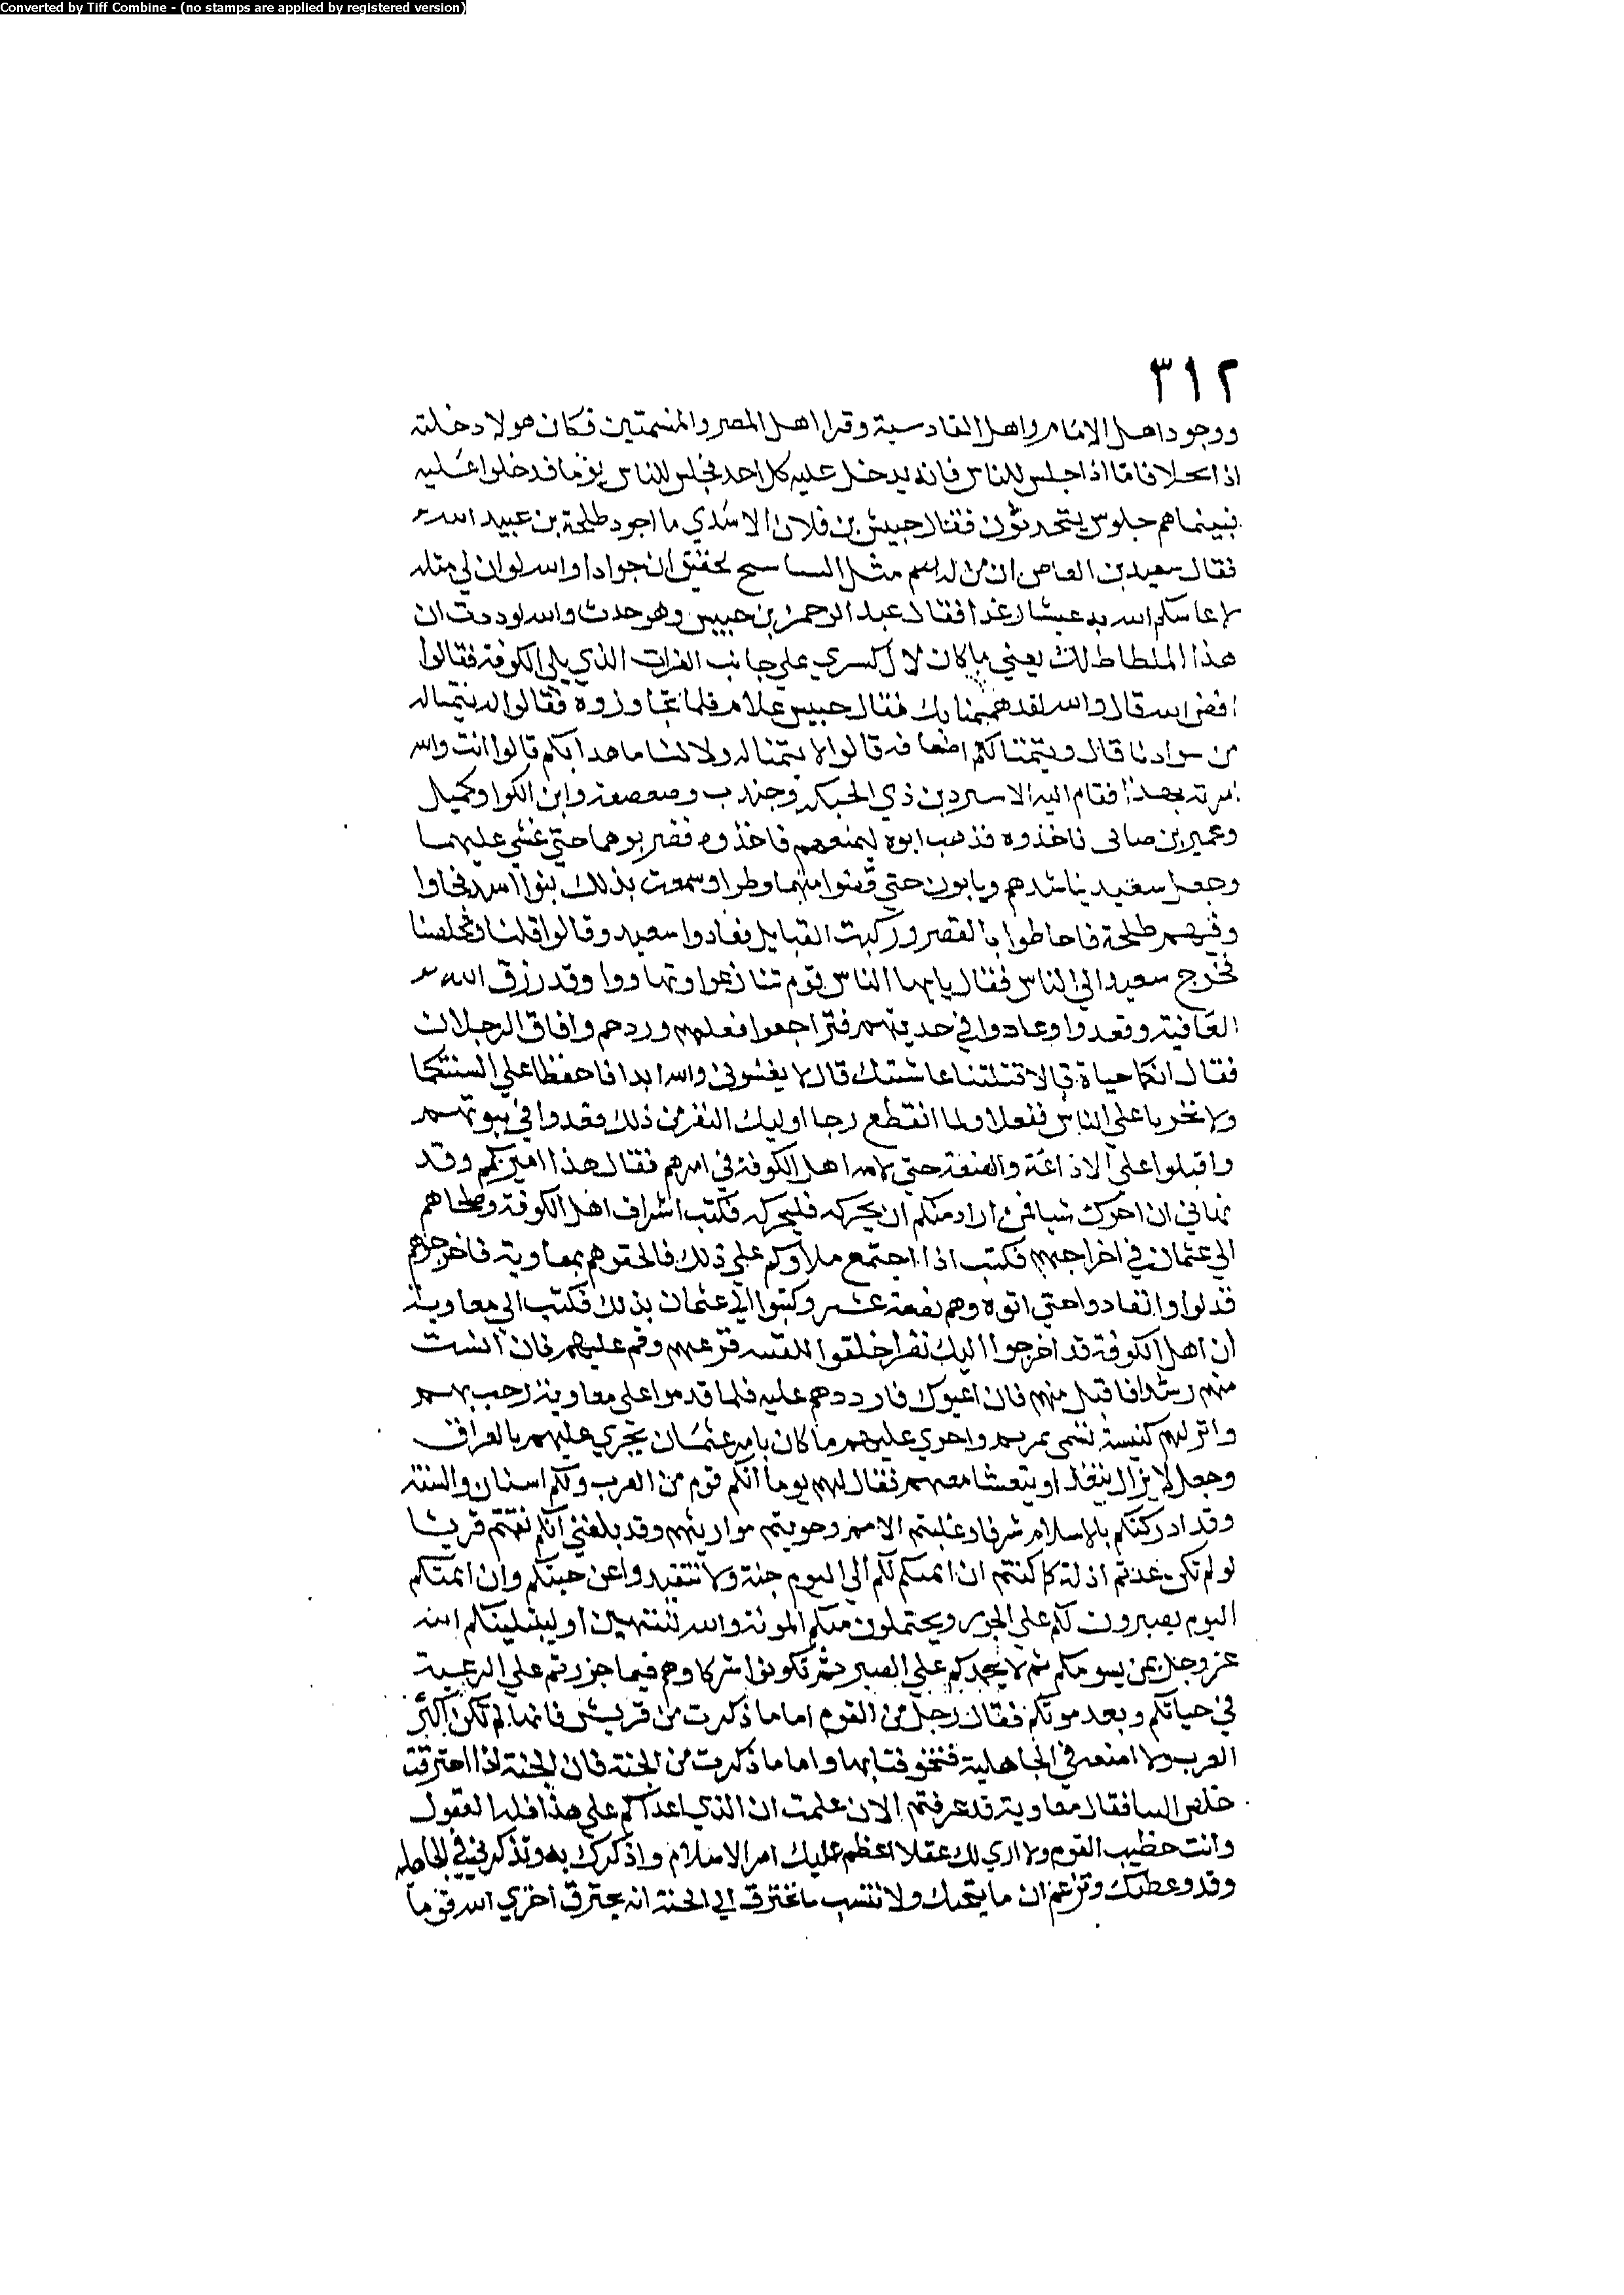 Converted by Tiff Combine - (no stamps are applied by registered version)
٣١٢
ووجوه اهل الايام واهل القادسية وقرا اهل المصر والمتسمتين فكان هولا دخلته
اذا خلا فاما اذا جلس للناس فانه يدخل عليه كل احد فجلس للناس يوما فدخلوا عليه
فبينماهم جلوس يتحدثون فقال حبيش بن فلان الاسدي ما اجود طلحة بن عبيد الله
فقال سعيد بن العاص ان من له اسم مثل النساسيج لحقيق ان جوادا والله لو ان لي مثله
لاعاشكم الله به عيشا رغدا فقال عبد الرحمن بن حبيس وهو حدث والله لوددت ان
هذا الملطاط لك يعني ما كان لال كسري علي جانب الفرات الذي يلي الكوفة فقالوا
افض الله قال والله لقد هممنا بك فقال حبيس غلام فلا تجاوزوه فقالوا له يتمنا له
من سوادنا قال ويتمنا لكم اضعافه قالوا لا يتمنا له ولا لنا ما هذا بكم قالوا انت والله
امرته بهذا فقام اليه الاستر وبن ذي الحبكه وجندب وصعصعة وابن الكوا وكميل
وعمير بن صابى فاخذوه فذهب ابوه ليمنعهم فاخذوه فضربوهما حتي غشي عليهما
وجعل سعيد يناشدهم ويابون حتي قضوا منهما وطرا وسمعت بذلك بنوا اسد فجاوا
وفيهم طلحة فاحاطوا بالقصر وركبت القبايل فعادوا سعيد وقالوا اقلنا وتخلصنا
فخرج سعيد الي الناس فقال يايها الناس قوم تنازعوا وتهاووا وقد رزق الله
العافية وقعدوا وعادوا في حديثهم فتراجعوا فعلهم وردهم وافاق الرجلان
فقال ابكما حياة قالا قتلتنا غاشتك قال لا يغشوني والله ابدا فاحفظا علي السنتكما
ولا تخربا علي الناس ففعلا ولما انقطع رجا اوليك النفر من ذلك وقعدوا في بيوتهم
واقبلوا علي الاذاعة حتي لامه اهل الكوفة في امرهم فقال هذا اميركم وقد
نهاني ان احرك شيا فمن اراد منكم ان يحركه فليحركه فكتب اشراف اهل الكوفة وصلحاهم
الي عثمان في اخراجهم فكتب اذا اجتمع ملاوكم علي ذلك فالحقوهم بمعاوية فاخرجوهم
فدلوا وانقادوا حتي اتوه وهم بضعة عشر وكتبوا الي عثمان بذلك فكتب الي معاوية
ان اهل الكوفة قد اخرجوا اليك نفرا خلقوا للفتنة فرعهم وقم عليهم فان انست
منهم رشدا فاقبل منهم فان اعيوك فارددهم عليه فلما قدموا علي معاوية رحب بهم
وانزلهم كنيسة تسمى بمريم واجري عليهم ما كان بامر عثمان يجري عليهم بالعراق
وجعل لا يزال يتغدا ويتعشا معهم فقال لهم يوما انكم قوم من العرب ولكم اسنان والسنة
وقد ادركتم بالاسلام شرفا وغلبتم الامم وحويتم مواريثهم وقد بلغني انكم نقمتم قريشا
لو لم تكن عدتم اذلة كما كنتم ان ايمتكم لكم الي اليوم جنة ولا تتفيدوا عن جنتكم وان ايمتكم
اليوم يصبرون لكم علي الجور ويحتملون منكم المونة والله لتنتهين او ليبتلينكم الله
عز وجل بمن يسومكم ثم لا يحمدكم علي الصبر ثم تكونوا شركاوهم فيما جررتم علي الرعية
في حياتكم وبعد موتكم فقال رجل من القوم اما ما ذكرت من قريش فانها لم تكن اكثر
العرب ولا امنعه في الجاهلية فتخوفتا بها واما ما ذكرت من الجنة فان الجنة اذا احترقت
خلص الينا فقال معاوية قد عرفتم الان علمت ان الذي اغراكم على هذا قلة العقول
وانت خطيب القوم ولا اري لك عقلا اعظم عليك امر الاسلام واذكرك به وتذكرني في الجاهله
وقد وعظتك وتزعم ان ما يجنك ولا تنسب ما تخترق الي الجنة انه يحترق اخزي الله قوما